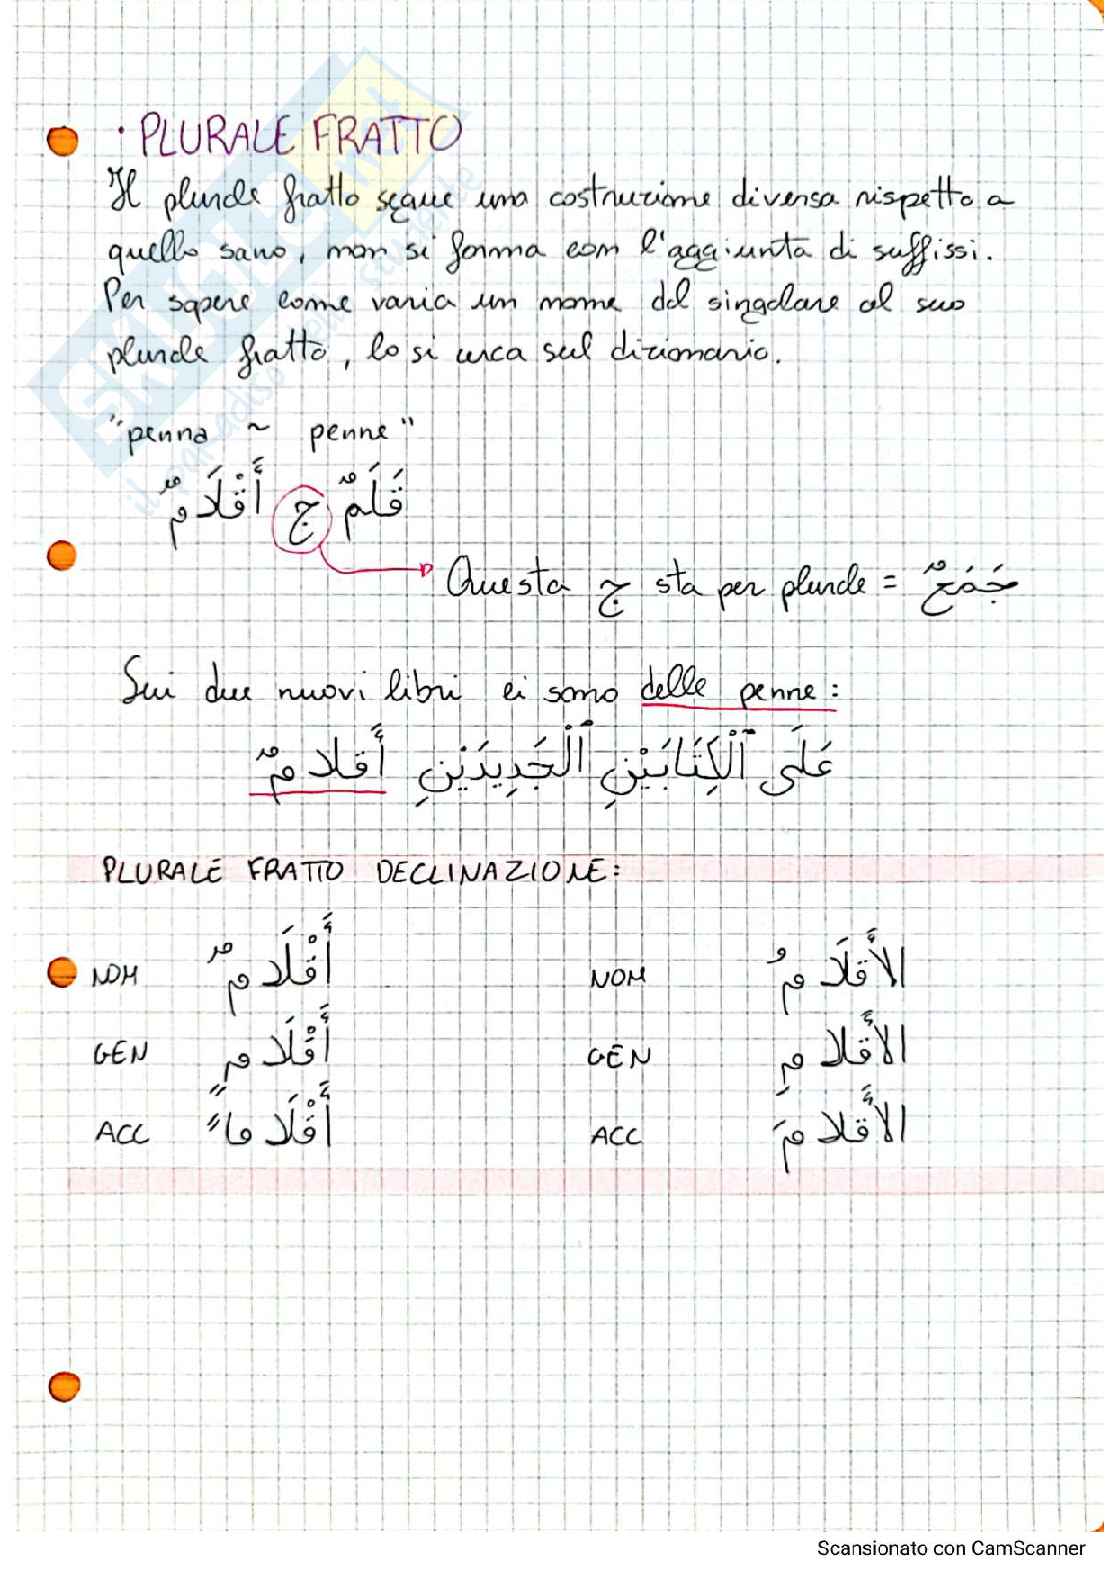 • PLURALE FRATTO
Il plurale fratto segue una costruzione diversa rispetto a
quello sano, non si forma con l'aggiunta di suffissi.
Per sapere come varia un nome dal singolare al suo
plurale fratto, lo si cerca sul dizionario.
"penna ~ penne"
قَلَمٌ ج أَقْلَامٌ
Questa ج sta per plurale = جَمَعٌ
Sui due nuovi libri ci sono delle penne:
عَلَى ٱلْكِتَابَيْنِ ٱلْجَدِيدَيْنِ أَقلامٌ
PLURALE FRATTO DECLINAZIONE:
NOM أَقْلَامٌ NOM الأَقلَامُ
GEN أَقْلَامٍ GEN الأَقلامِ
ACC أَقْلَاماً ACC الأَقلامَ
SKUOLA
il paradiso dello studente
Scansionato con CamScanner